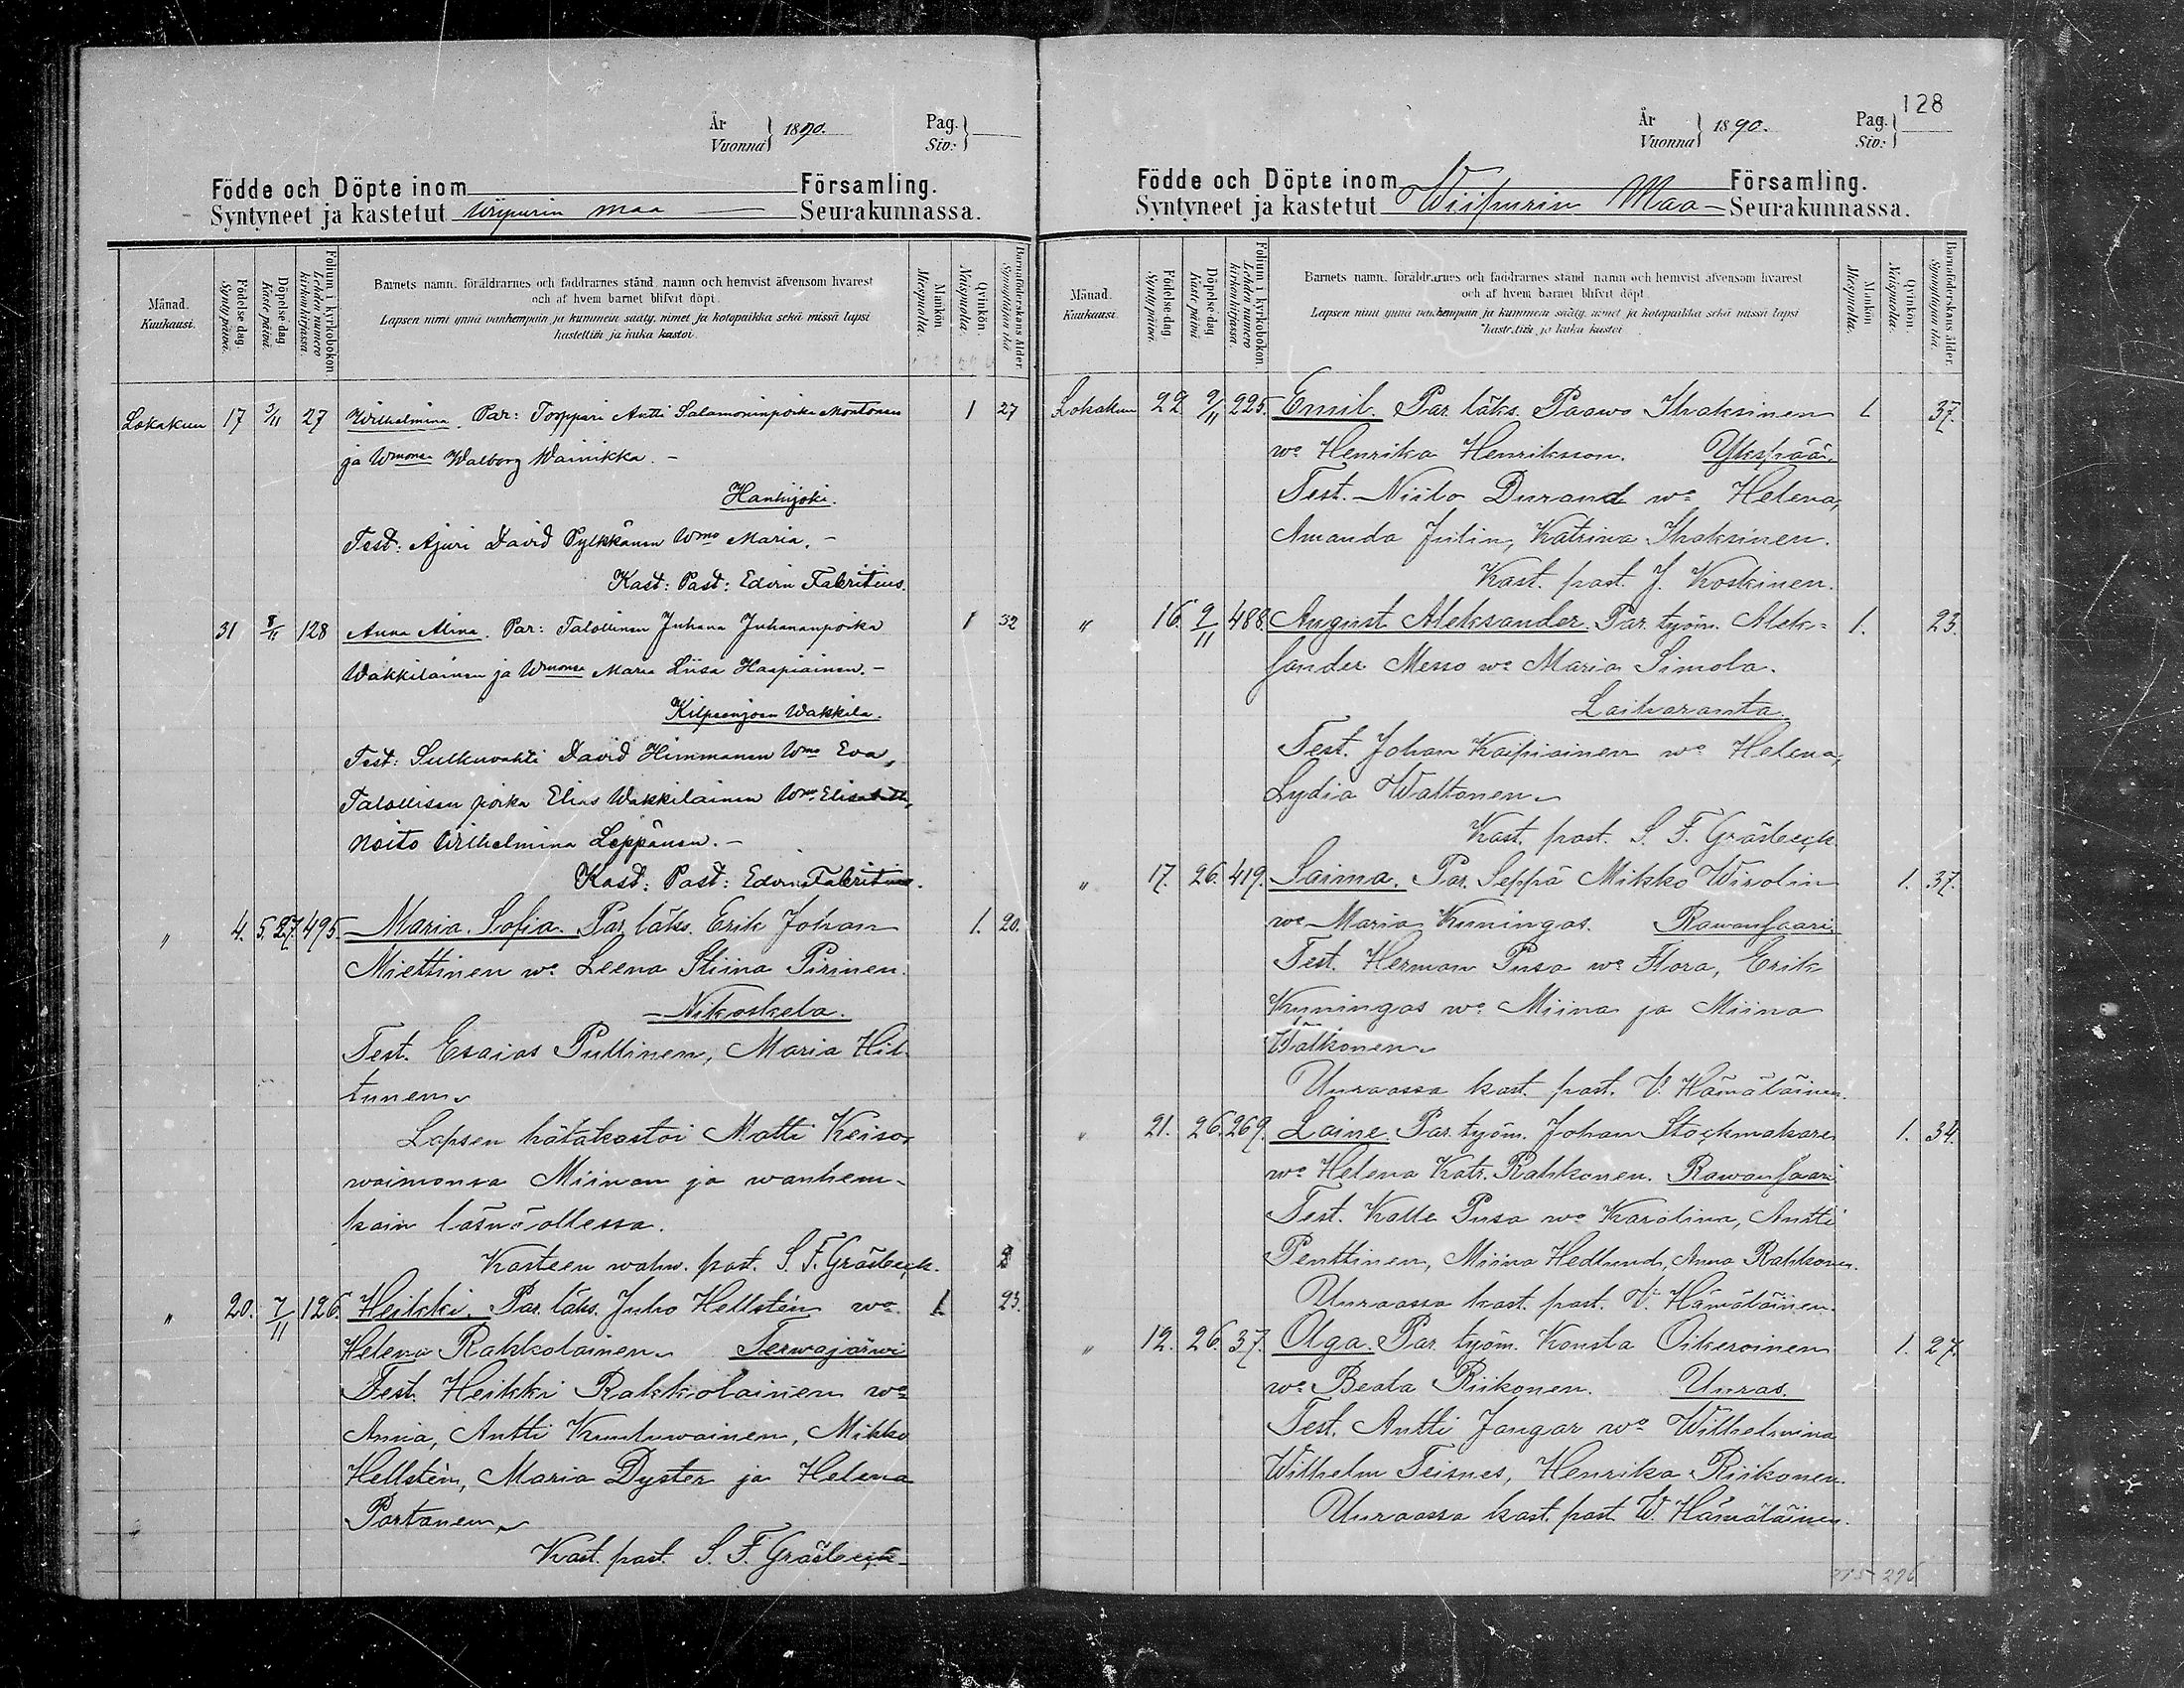 År
Vuonna } 1890.
Pag.
Siv: }
Födde och Döpte inom Församling.
Syntyneet ja kastetut Wiipurin maa Seurakunnassa.
Månad. Kuukausi.
Födelse dag. Synty päivä.
Döpelse dag. Kaste päivä.
Folium i kyrkobokon. Lehden numero kirkonkirjassa.
Barnets namn, föräldrarnes och faddrarnes stånd, namn och hemvist äfvensom hvarest
och af hvem barnet blifvit döpt.
Lapsen nimi ynnä vanhempain ja kummein sääty, nimet ja kotopaikka sekä missä lapsi
kastettiin ja kuka kastoi.
Mankön Miespuolia.
Qvinkön. Naispuolia.
Barnaföderskans ålder. Synnyttäjän ikä
Lokakuu 17 3/11 27 Wilhelmina. Par: Torppari Antti Salamoninpoika Montonen 1 27
ja Wmonsa Walborg Wainikka. –
Hanhijoki.
Test: Ajuri David Pylkkänen Wmo Maria. –
Kast: Past: Edvin Fabritius.
31 8/11 128 Anna Alina. Par: Talollinen Juhana Juhananpoika 1 32
Wakkilainen ja Wmonsa Maria Liisa Haapiainen. –
Kilpeenjoen Wakkila.
Test: Sulkuvahti David Himmanen Wmo Eva,
Talollisen poika Elias Wakkilainen Wmo Elisabeth,
Neito Wilhelmina Leppänen. –
Kast: Past: Edvin Fabritius.
" 4. 5. 27. 495. Maria Sofia. Par. läks. Erik Johan 1. 20.
Miettinen wo. Leena Stiina Pirinen.
– Nikoskela.
Test. Esaias Pullinen, Maria Hil-
tunen.
Lapsen hätäkastoi Matti Keiso
waimonsa Miinan ja wanhem-
pain läsnäollessa.
Kasteen wahw. past. S. F. Gräsbeck.
" 20. 7/11 126. Heikki. Par. läks. Juho Hellstén wo. 1. 23.
Helena Rakkolainen. Terwajärwi
Test. Heikki Rakkolainen wo
Anna, Antti Kuuluwainen, Mikko
Hellstén, Maria Dyster ja Helena
Partanen.
Kast. past. S. F. Gräsbeck
128
År
Vuonna } 1890.
Pag.
Siv: }
Födde och Döpte inom Församling.
Syntyneet ja kastetut Wiipurin Maa – Seurakunnassa.
Månad. Kuukausi.
Födelse dag. Synty päivä.
Döpelse dag. Kaste päivä
Folium i kyrkobokon. Lehden numero kirkonkirjassa.
Barnets namn, föräldrarnes och faddrarnes stånd, namn och hemvist äfvensom hvarest
och af hvem barnet blifvit döpt.
Lapsen nimi ynnä vanhempain ja kummein sääty, nimet ja kotopaikka sekä missä lapsi
kastettiin ja kuka kastoi
Mankön Miespuolia.
Qvinkön. Naispuolia.
Barnaföderskans ålder. Synnyttäjän ikä.
Lokakuu 22 9/11 225. Emil. Par. läks. Paawo Ihaksinen 1 37.
wo. Henrika Henriksson. Ykspää.
Test. Niilo Durand wo Helena,
Amanda Julin, Katrina Ihaksinen.
Kast. past. J. Koskinen.
" 16. 9/11 488. August Aleksander. Par. työm. Alek- 1. 23.
sander Messo wo Maria Simola.
Laiharanta.
Test. Johan Kaipiainen wo Helena,
Lydia Waltonen.
Kast. past. S. F. Gräsbeck
" 17. 26. 419. Saima. Par. Seppä Mikko Wirolin 1. 37.
wo Maria Kuningas. Rawansaari
Test. Herman Pusa wo Flora, Erik
Kuningas wo Miina ja Miina
Walkonen.
Uuraassa kast. past. V. Hämäläinen.
" 21. 26. 269. Laine. Par. työm. Johan Stockmakare 1. 34.
wo Helena Katr. Rahkonen. Rawansaari
Test. Kalle Pusa wo Karolina, Antti
Penttinen, Miina Hedlund, Anna Rahkonen.
Uuraassa kast. past. V. Hämäläinen.
" 12. 26. 37. Olga. Par. työm. Konsta Oikeroinen 1. 27.
wo Beata Riikonen. Uuras.
Test. Antti Jangar wo Wilhelmina
Wilhelm Teisnes, Henrika Riikonen.
Uuraassa kast. past. W. Hämäläinen.
296